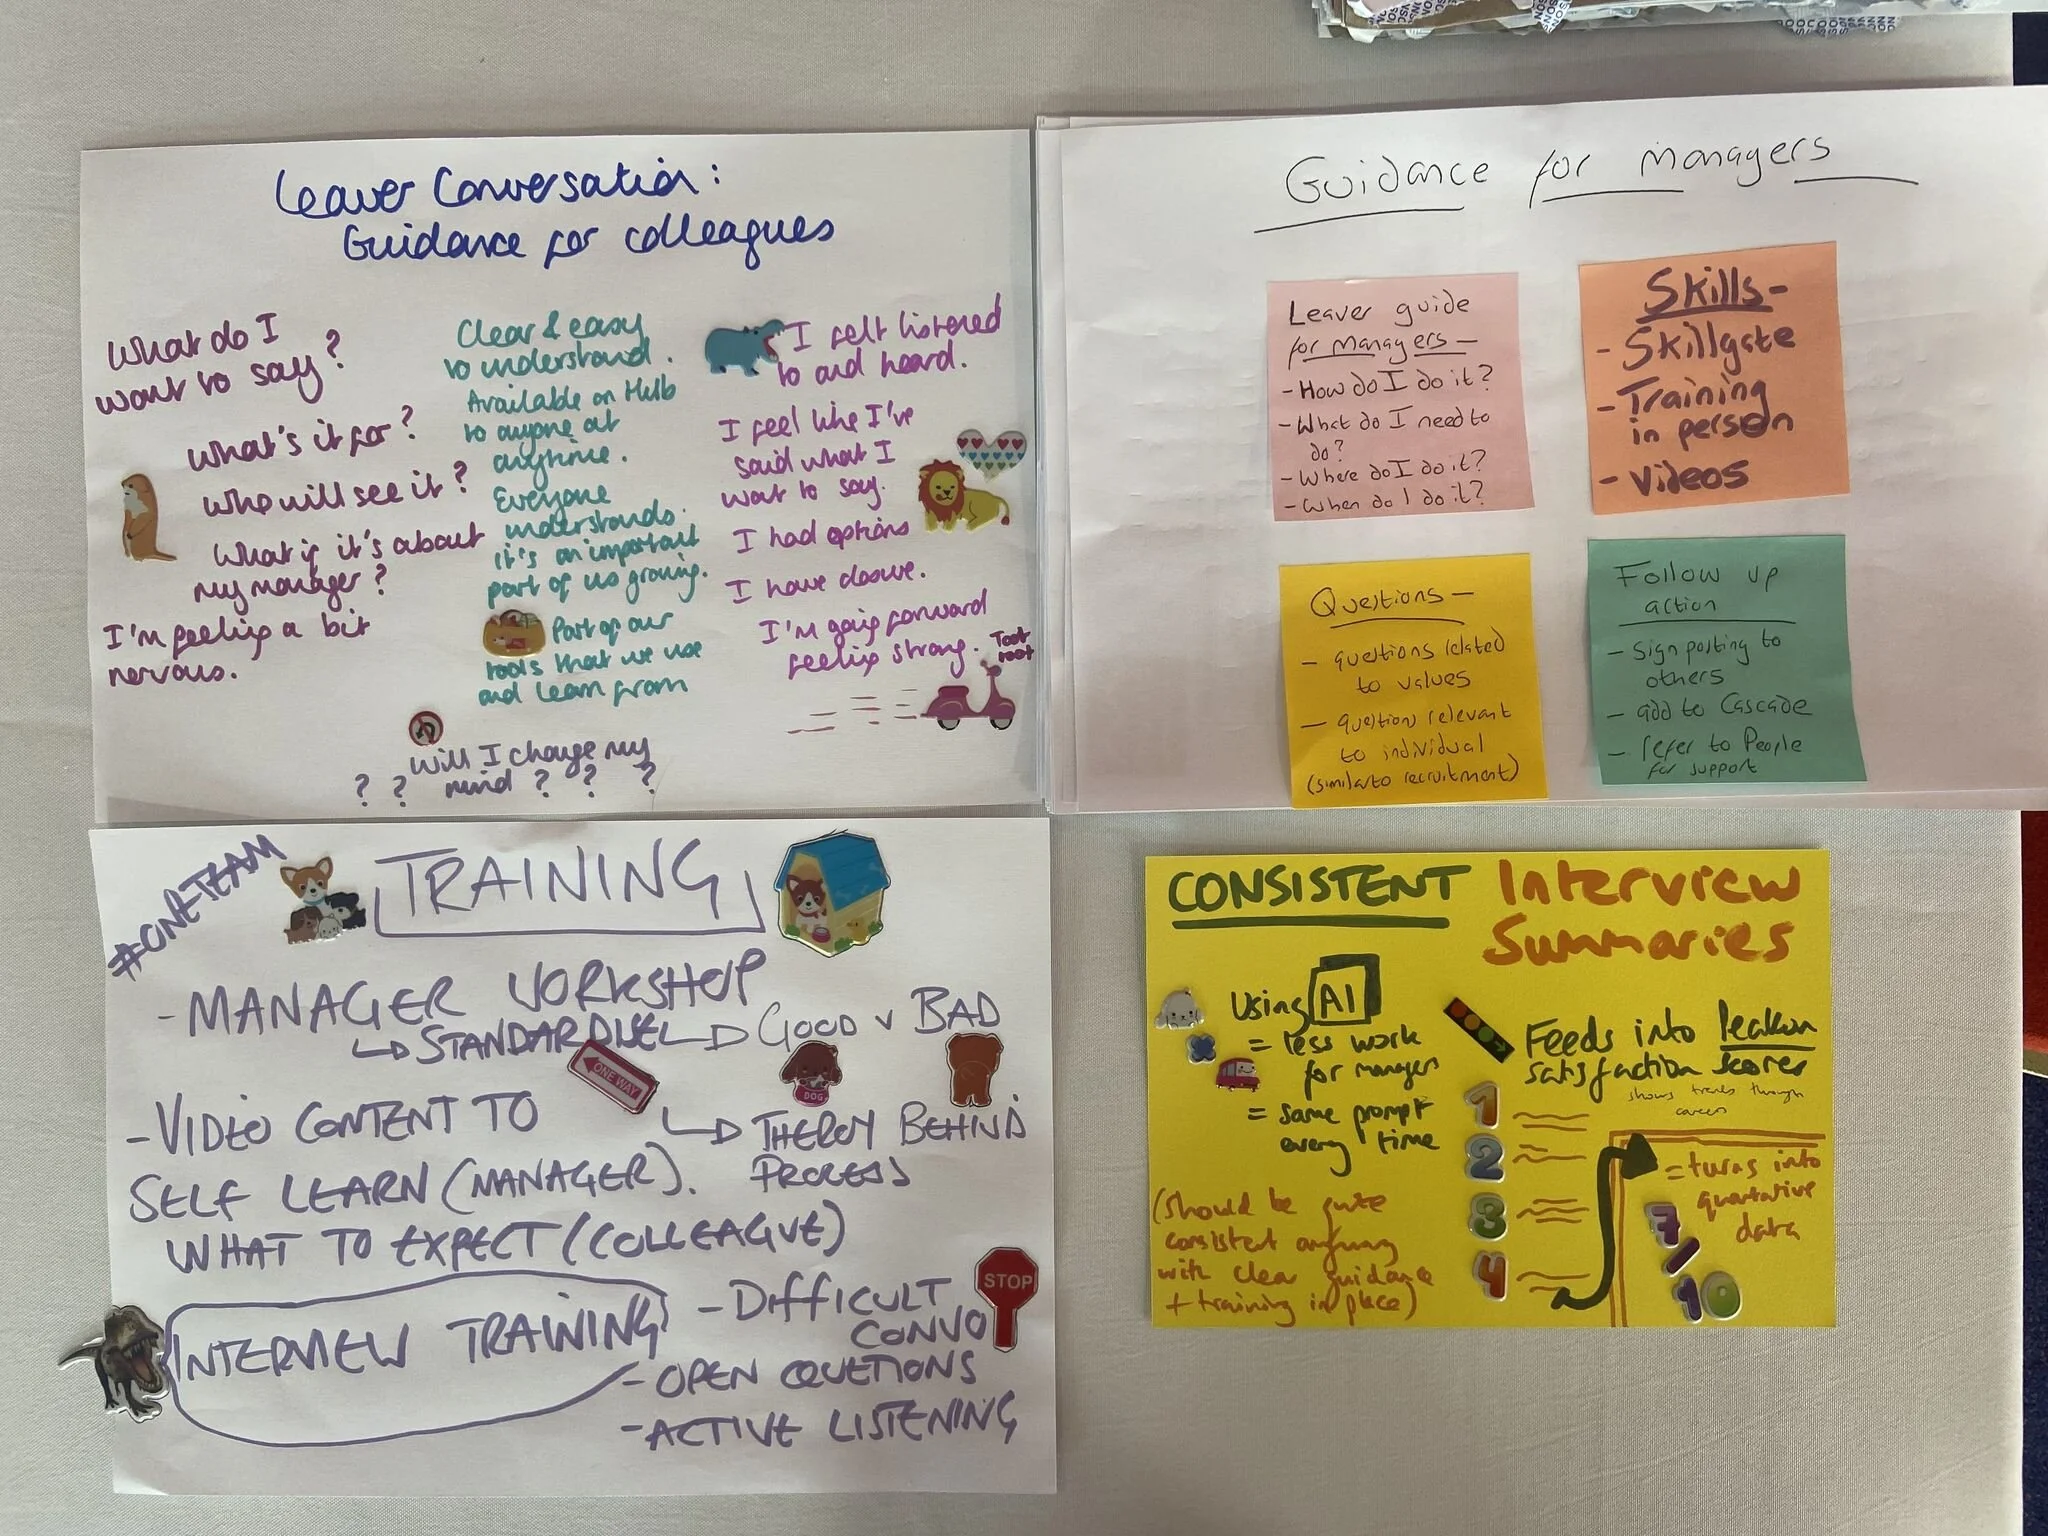 Leaver Conversation:
Guidance for colleagues
What do I
want to say?
What's it for?
Who will see it?
What if it's about
my manager?
I'm feeling a bit
nervous.
Clear & easy
to understand.
Available on Hub
to anyone at
anytime.
Everyone
understands.
it's an important
part of us growing.
Part of our
tools that we use
and learn from
I felt listened
to and heard.
I feel like I've
said what I
want to say.
I had options
I have closure.
I'm going forward
feeling strong.
Toot
toot
Will I change my
? ? mind ? ? ?
Guidance for managers
Leaver guide
for managers -
- How do I do it?
- What do I need to
do?
- Where do I do it?
- When do I do it?
Skills -
- Skillgate
- Training
in person
- Videos
Questions -
- questions related
to values
- question relevant
to individual
(similar to recruitment)
Follow up
action
- Sign posting to
others
- add to Cascade
- refer to People
for support
#ONETEAM
TRAINING
- MANAGER WORKSHOP
STANDARDISE
GOOD v BAD
ONE WAY
DOG
THEROY BEHIND
PROCESS
- VIDEO CONTENT TO
SELF LEARN (MANAGER).
WHAT TO EXPECT (COLLEAGUE)
INTERVIEW TRAINING
- DIFFICULT
CONVO
STOP
- OPEN QUETIONS
- ACTIVE LISTENING
CONSISTENT Interview
Summaries
Using AI
= less work
for managers
= same prompt
every time
(should be quite
consistent anyway
with clear guidance
+ training in place)
Feeds into Peakon
satisfaction scores
shows trends through
careers
1
2
3
4
= turns into
quantative
data
7/10